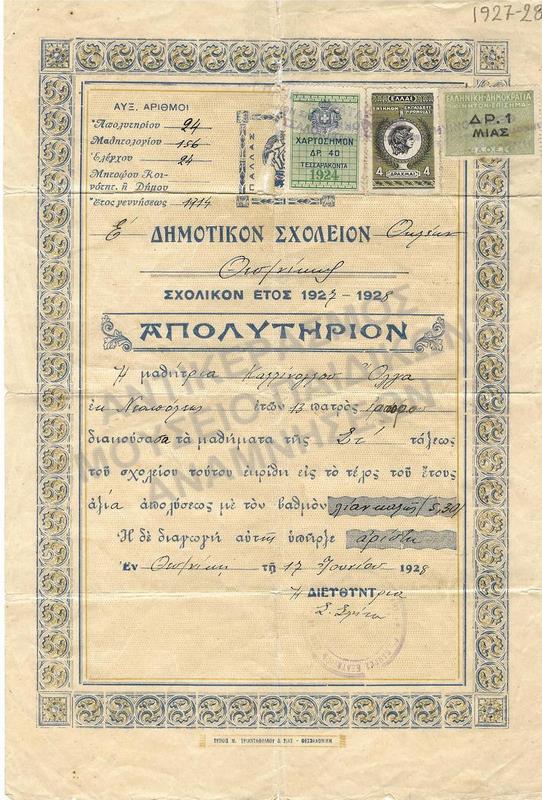 1927-28
ΑΥΞ. ΑΡΙΘΜΟΙ
Ἀπολυτηρίου 24
Μαθητολογίου 156
Ἐλέγχου 24
Μητρῴου Κοι-
νότητ. ἢ Δήμου
Ἔτος γεννήσεως 1914
ΠΑΛΛΑΣ
ΧΑΡΤΟΣΗΜΟΝ
ΔΡ. 40
ΤΕΣΣΑΡΑΚΟΝΤΑ
1924
ΕΛΛΑΣ
4 ΔΡΑΧΜΑΙ 4
ΕΛΛΗΝΙΚΗ ΔΗΜΟΚΡΑΤΙΑ
ΚΙΝΗΤΟΝ ΕΠΙΣΗΜΑ
ΔΡ. 1
ΜΙΑΣ
Ε΄ ΔΗΜΟΤΙΚΟΝ ΣΧΟΛΕΙΟΝ Θηλέων
Θεσ/νίκης
ΣΧΟΛΙΚΟΝ ΕΤΟΣ 1927 - 1928
ΑΠΟΛΥΤΗΡΙΟΝ
Ἡ μαθήτρια Ὄλγα
ἐκ Νεαπόλεως ἐτῶν 13 πατρὸς
διακούσασα τὰ μαθήματα τῆς ΣΤ΄ τάξεως
τοῦ σχολείου τούτου εὑρέθη εἰς τὸ τέλος τοῦ ἔτους
ἀξία ἀπολύσεως μὲ τὸν βαθμὸν λίαν καλῶς (5,30)
Ἡ δὲ διαγωγὴ αὐτῆς ὑπῆρξε ἀρίστη
Ἐν Θεσ/νίκῃ τῇ 17 Ἰουνίου 1928
Ἡ ΔΙΕΥΘΥΝΤρια
ΑΝΤΙΚΕΡΑΣΜΟΣ
ΜΟΥΣΕΙΟ ΠΑΙΔΙΚΩΝ
ΑΝΑΜΝΗΣΕΩΝ